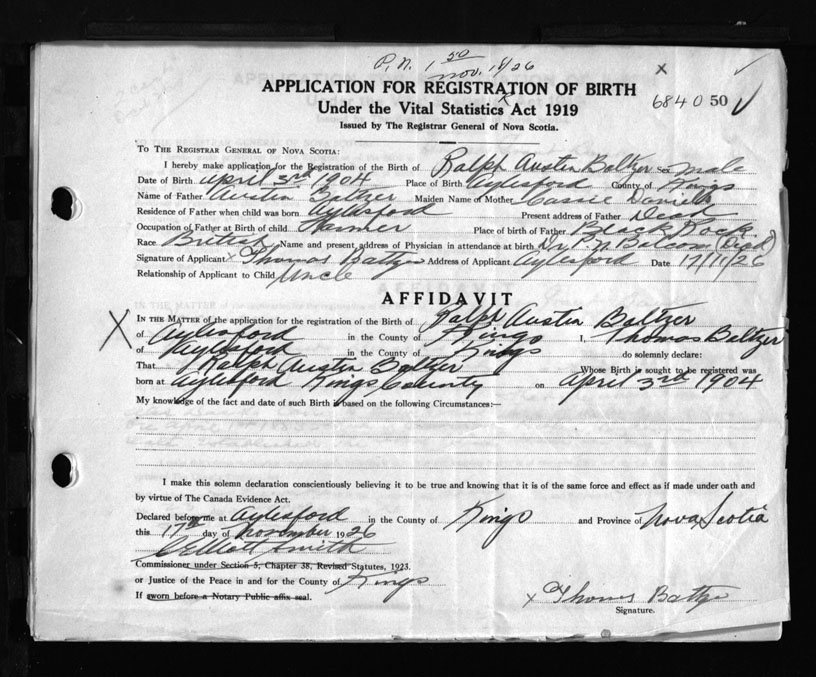 P.N. 1 50
Nov. 18/26
APPLICATION FOR REGISTRATION OF BIRTH
Under the Vital Statistics Act 1919
6840 50
Issued by The Registrar General of Nova Scotia.
TO THE REGISTRAR GENERAL OF NOVA SCOTIA:
I hereby make application for the Registration of the Birth of Ralph Austin Baltzer Sex male
Date of Birth April 3rd 1904 Place of Birth Aylesford County of Kings
Name of Father Austin Baltzer Maiden Name of Mother Cassie Daniels
Residence of Father when child was born Aylesford Present address of Father Dead
Occupation of Father at Birth of child Farmer Place of birth of Father Black Rock
Race British Name and present address of Physician in attendance at birth Dr. P.N. Balcom (Dead)
Signature of Applicant x Thomas Baltzer Address of Applicant Aylesford Date 17/11/26
Relationship of Applicant to Child Uncle
AFFIDAVIT
IN THE MATTER of the application for the registration of the Birth of Ralph Austin Baltzer
of Aylesford in the County of Kings I, Thomas Baltzer
of Aylesford in the County of Kings do solemnly declare:
That Ralph Austin Baltzer Whose Birth is sought to be registered was
born at Aylesford Kings County on April 3rd 1904
My knowledge of the fact and date of such Birth is based on the following Circumstances:—
I make this solemn declaration conscientiously believing it to be true and knowing that it is of the same force and effect as if made under oath and
by virtue of The Canada Evidence Act.
Declared before me at Aylesford in the County of Kings and Province of Nova Scotia
this 17th day of November 1926
Elliott Smith
Commissioner under Section 5, Chapter 38, Revised Statutes, 1923.
or Justice of the Peace in and for the County of Kings
If sworn before a Notary Public affix seal.
x Thomas Baltzer
Signature.